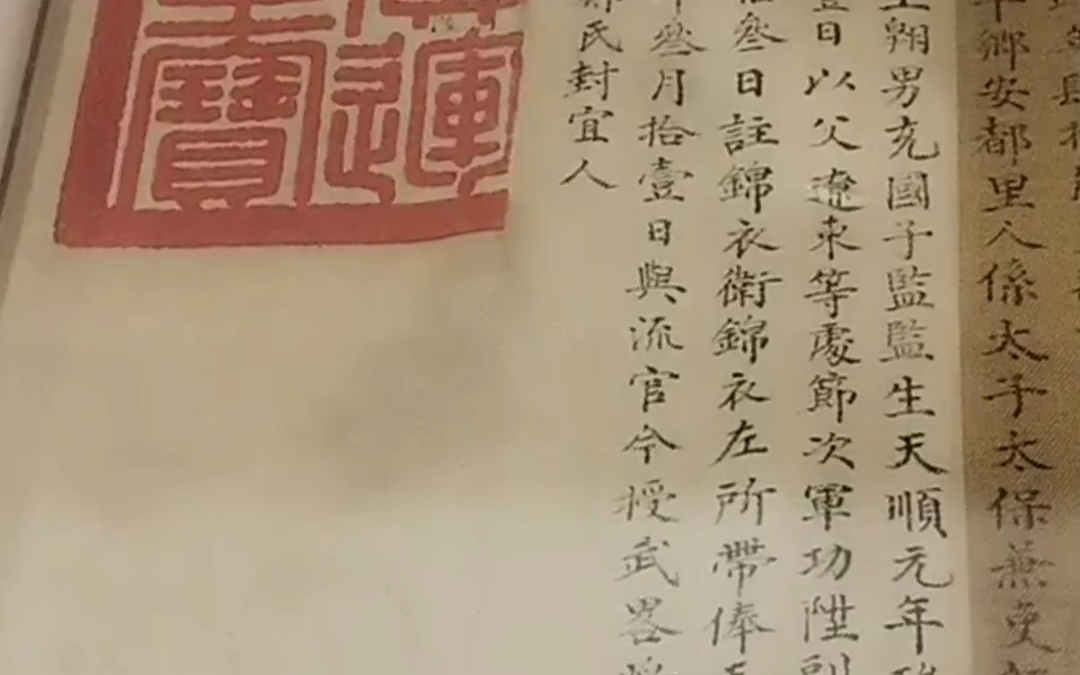 鄉安都里人係太子太保兼
翱男充國子監監生天順元年
日以父遼東等處節次軍功陞
叁日註錦衣衛錦衣左所帶俸
叁月拾壹日與流官今授武畧
民封宜人
運
寶